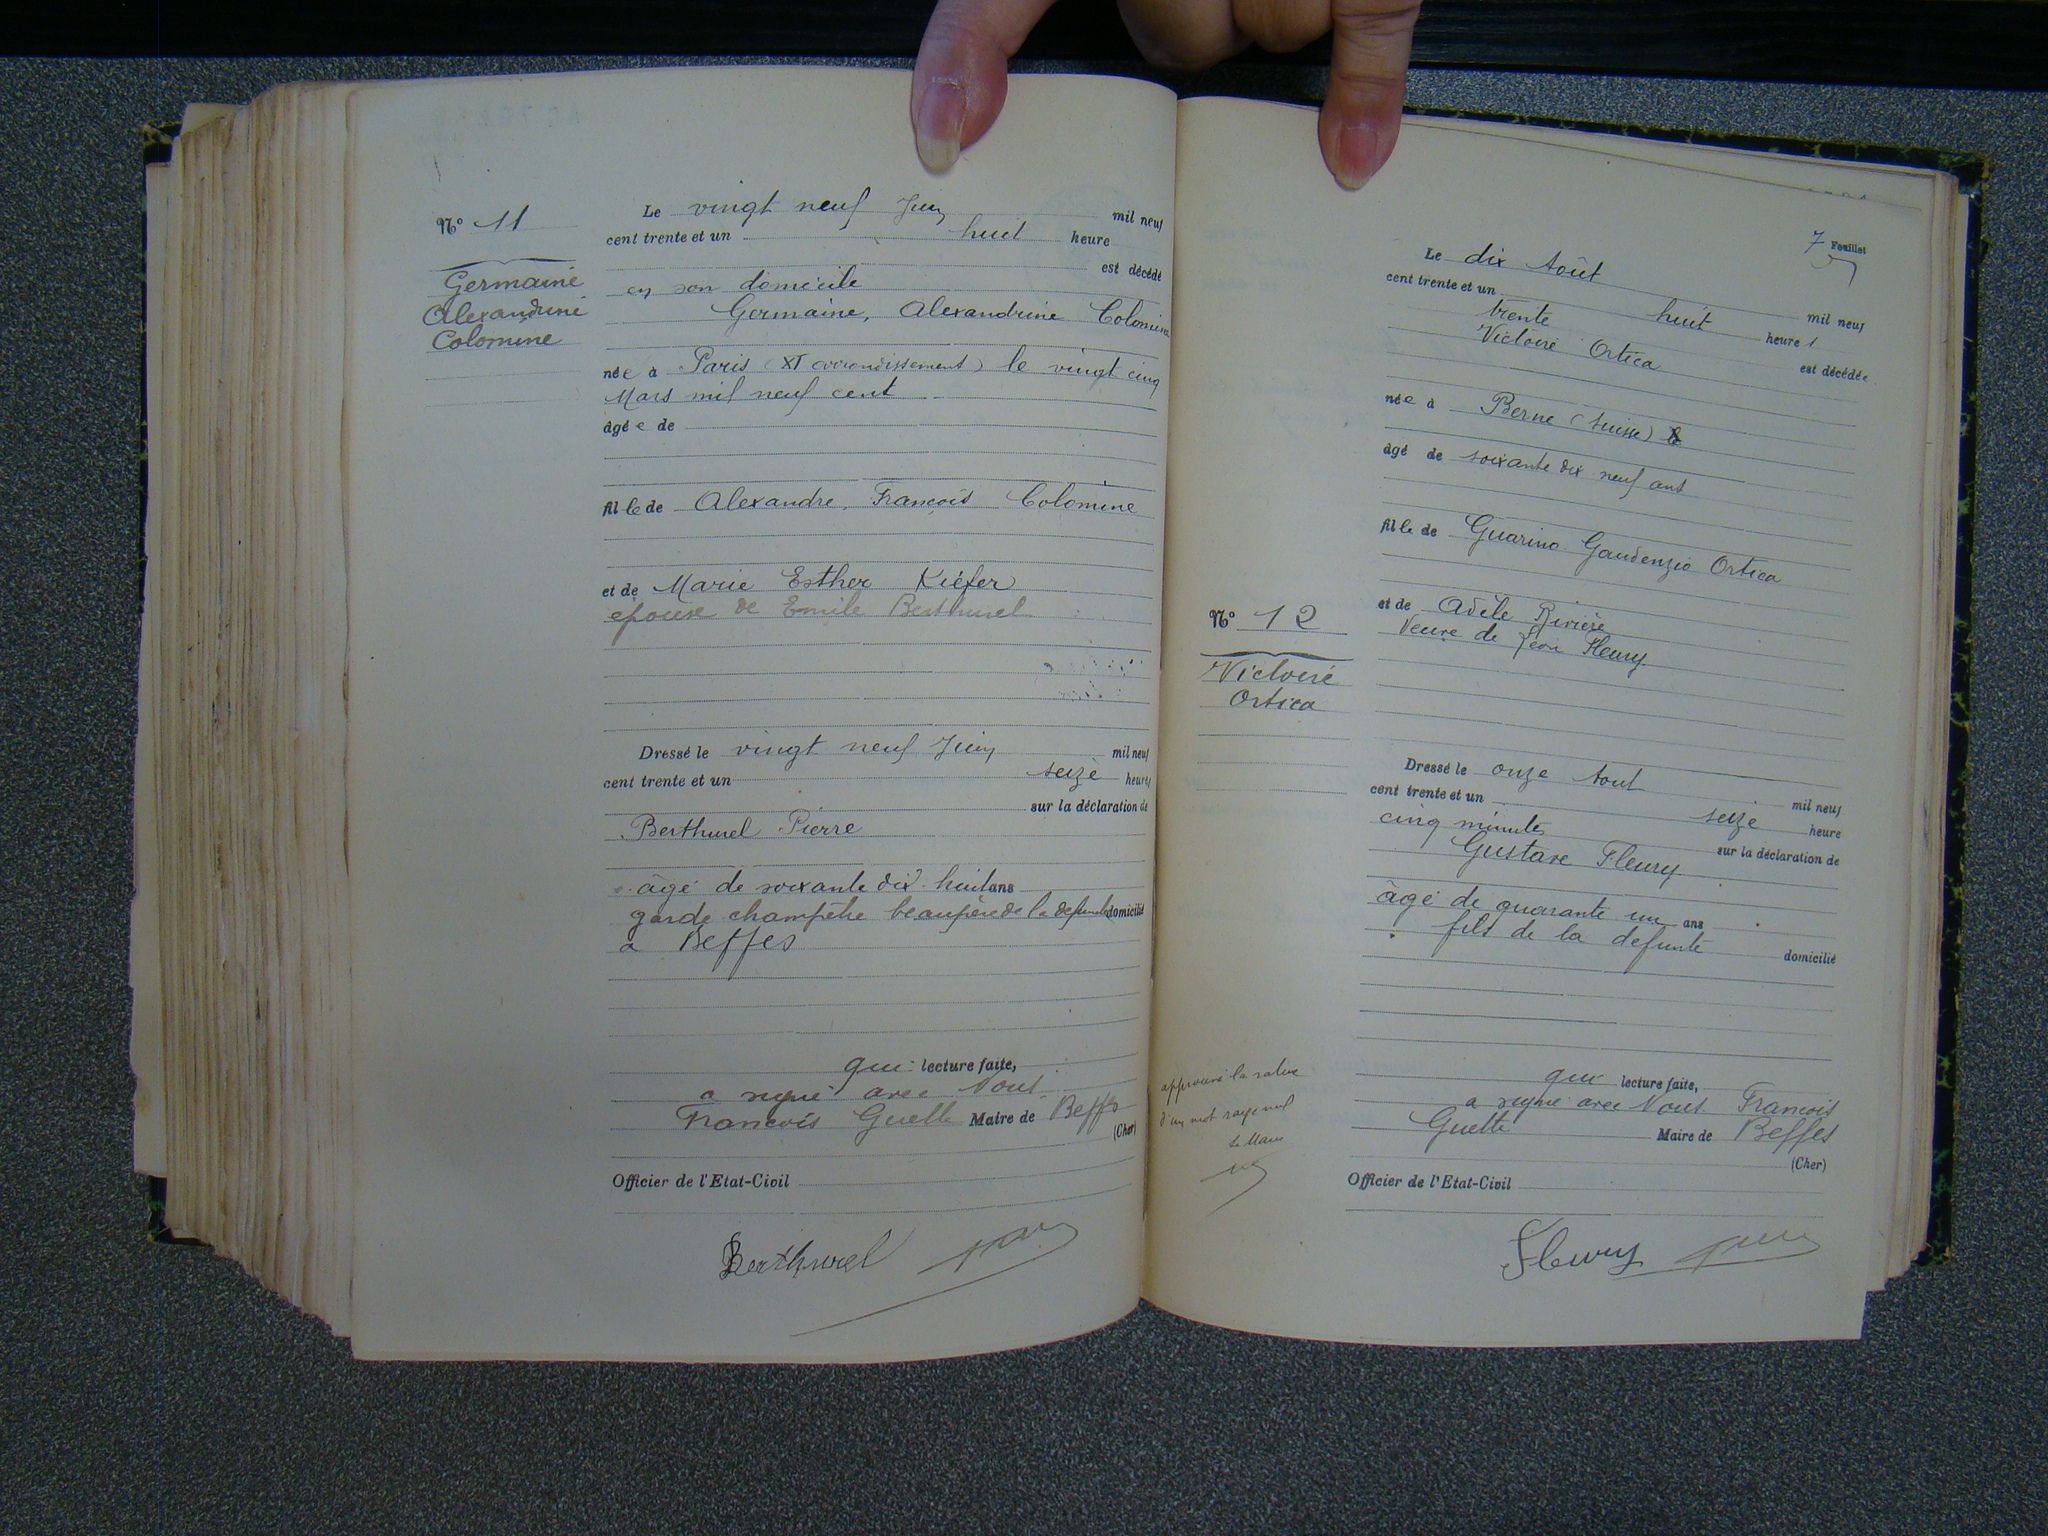 Nº 11
Germaine
Alexandrine
Colomine
Le vingt neuf Juin mil neuf
cent trente et un huit heure
est décédé
en son domicile
Germaine, Alexandrine Colomine
née à Paris (XI arrondissement) le vingt cinq
Mars mil neuf cent
âgée de
fille de Alexandre, François Colomine
et de Marie Esther Kiéfer
épouse de Emile Berthurel
Dressé le vingt neuf Juin mil neuf
cent trente et un seize heures
sur la déclaration de
Berthurel Pierre
âgé de soixante dix huit ans
garde champêtre beau père de la defunte domicilié
a Beffes
qui lecture faite,
a signé avec Nous
François Guette Maire de Beffes
(Cher)
Officier de l'Etat-Civil
Berthurel
7 Feuillet
Nº 12
Victoire
Ortica
Le dix Août mil neuf
cent trente et un huit heure
trente est décédée
Victoire Ortica
née à Berne (Suisse) le
âgé de soixante dix neuf ans
fille de Guarino Gaudenzio Ortica
et de Adèle Rivière
Veuve de Léon Fleury
Dressé le onze Aout mil neuf
cent trente et un seize heure
cinq minutes sur la déclaration de
Gustave Fleury
âgé de quarante un ans
fils de la defunte domicilié
qui lecture faite,
a signé avec Nous François
Guette Maire de Beffes
(Cher)
Officier de l'Etat-Civil
approuvé la rature
d'un mot rayé nul
Le Maire
Fleury